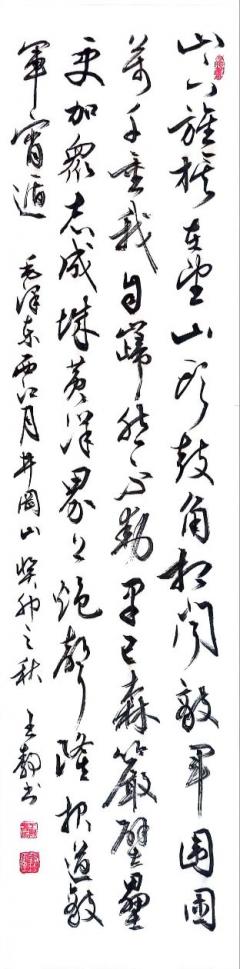 山下旌旗在望山头鼓角相闻敵军围困
萬千重我自巋然不動早已森嚴壁壘
更加眾志成城黄洋界上炮聲隆报道敵
軍宵遁 毛泽东西江月井岡山 癸卯之秋 王静书